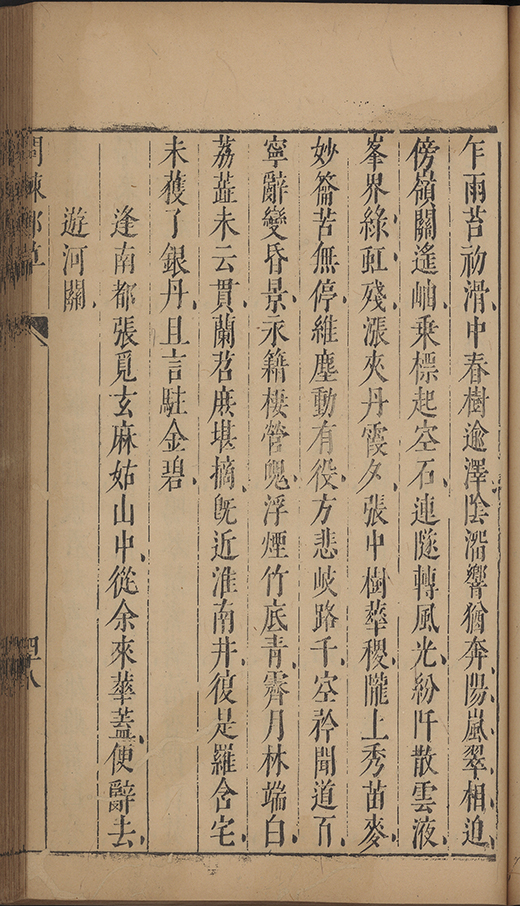 乍雨苔初滑中春樹逾澤陰響猶奔陽嵐翠相迫
傍嶺關遙岫乘標起空石連隧轉風光紛阡散雲液
峯界綠虹殘漲夾丹霞夕張中樹華稷隴上秀苗麥
妙籥苦無停維塵動有役方悲岐路千空矜聞道百
寧辭變昏景永籍棲營魄浮煙竹底青霽月林端白
荔蕋未云貫蘭苕庶堪摘既近淮南井復是羅含宅
未獲了銀丹且言駐金碧
逢南都張覓玄麻姑山中從余來華蓋便辭去
遊河關
問棘郵草
四八